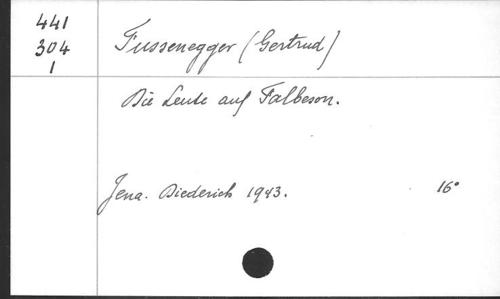 441
304
1
Fussenegger (Gertrud)
Die Leute auf Falbeson.
Jena. Diederich 1943. 16°